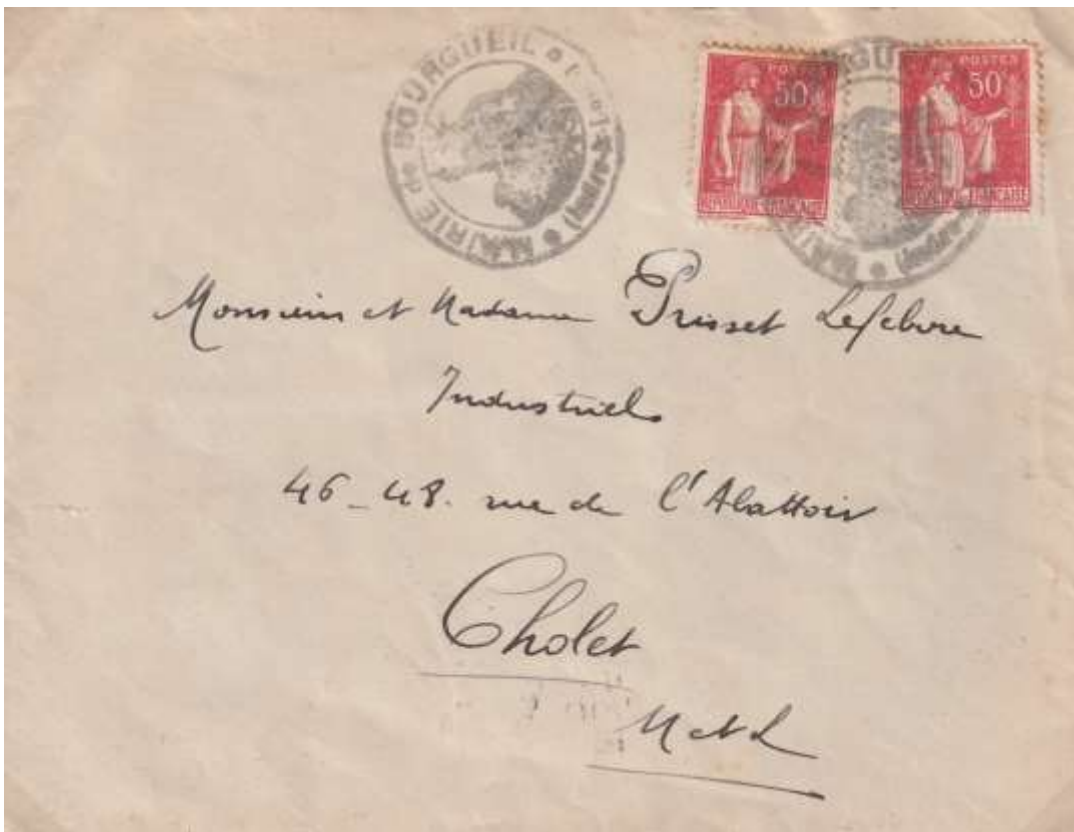 MAIRIE de BOURGUEIL
POSTES
50
REPUBLIQUE FRANCAISE
POSTES
50
REPUBLIQUE FRANCAISE
Monsieur et Madame Prisset Lefebvre
Industriels
46-48. rue de l'Abattoir
Cholet
M et L